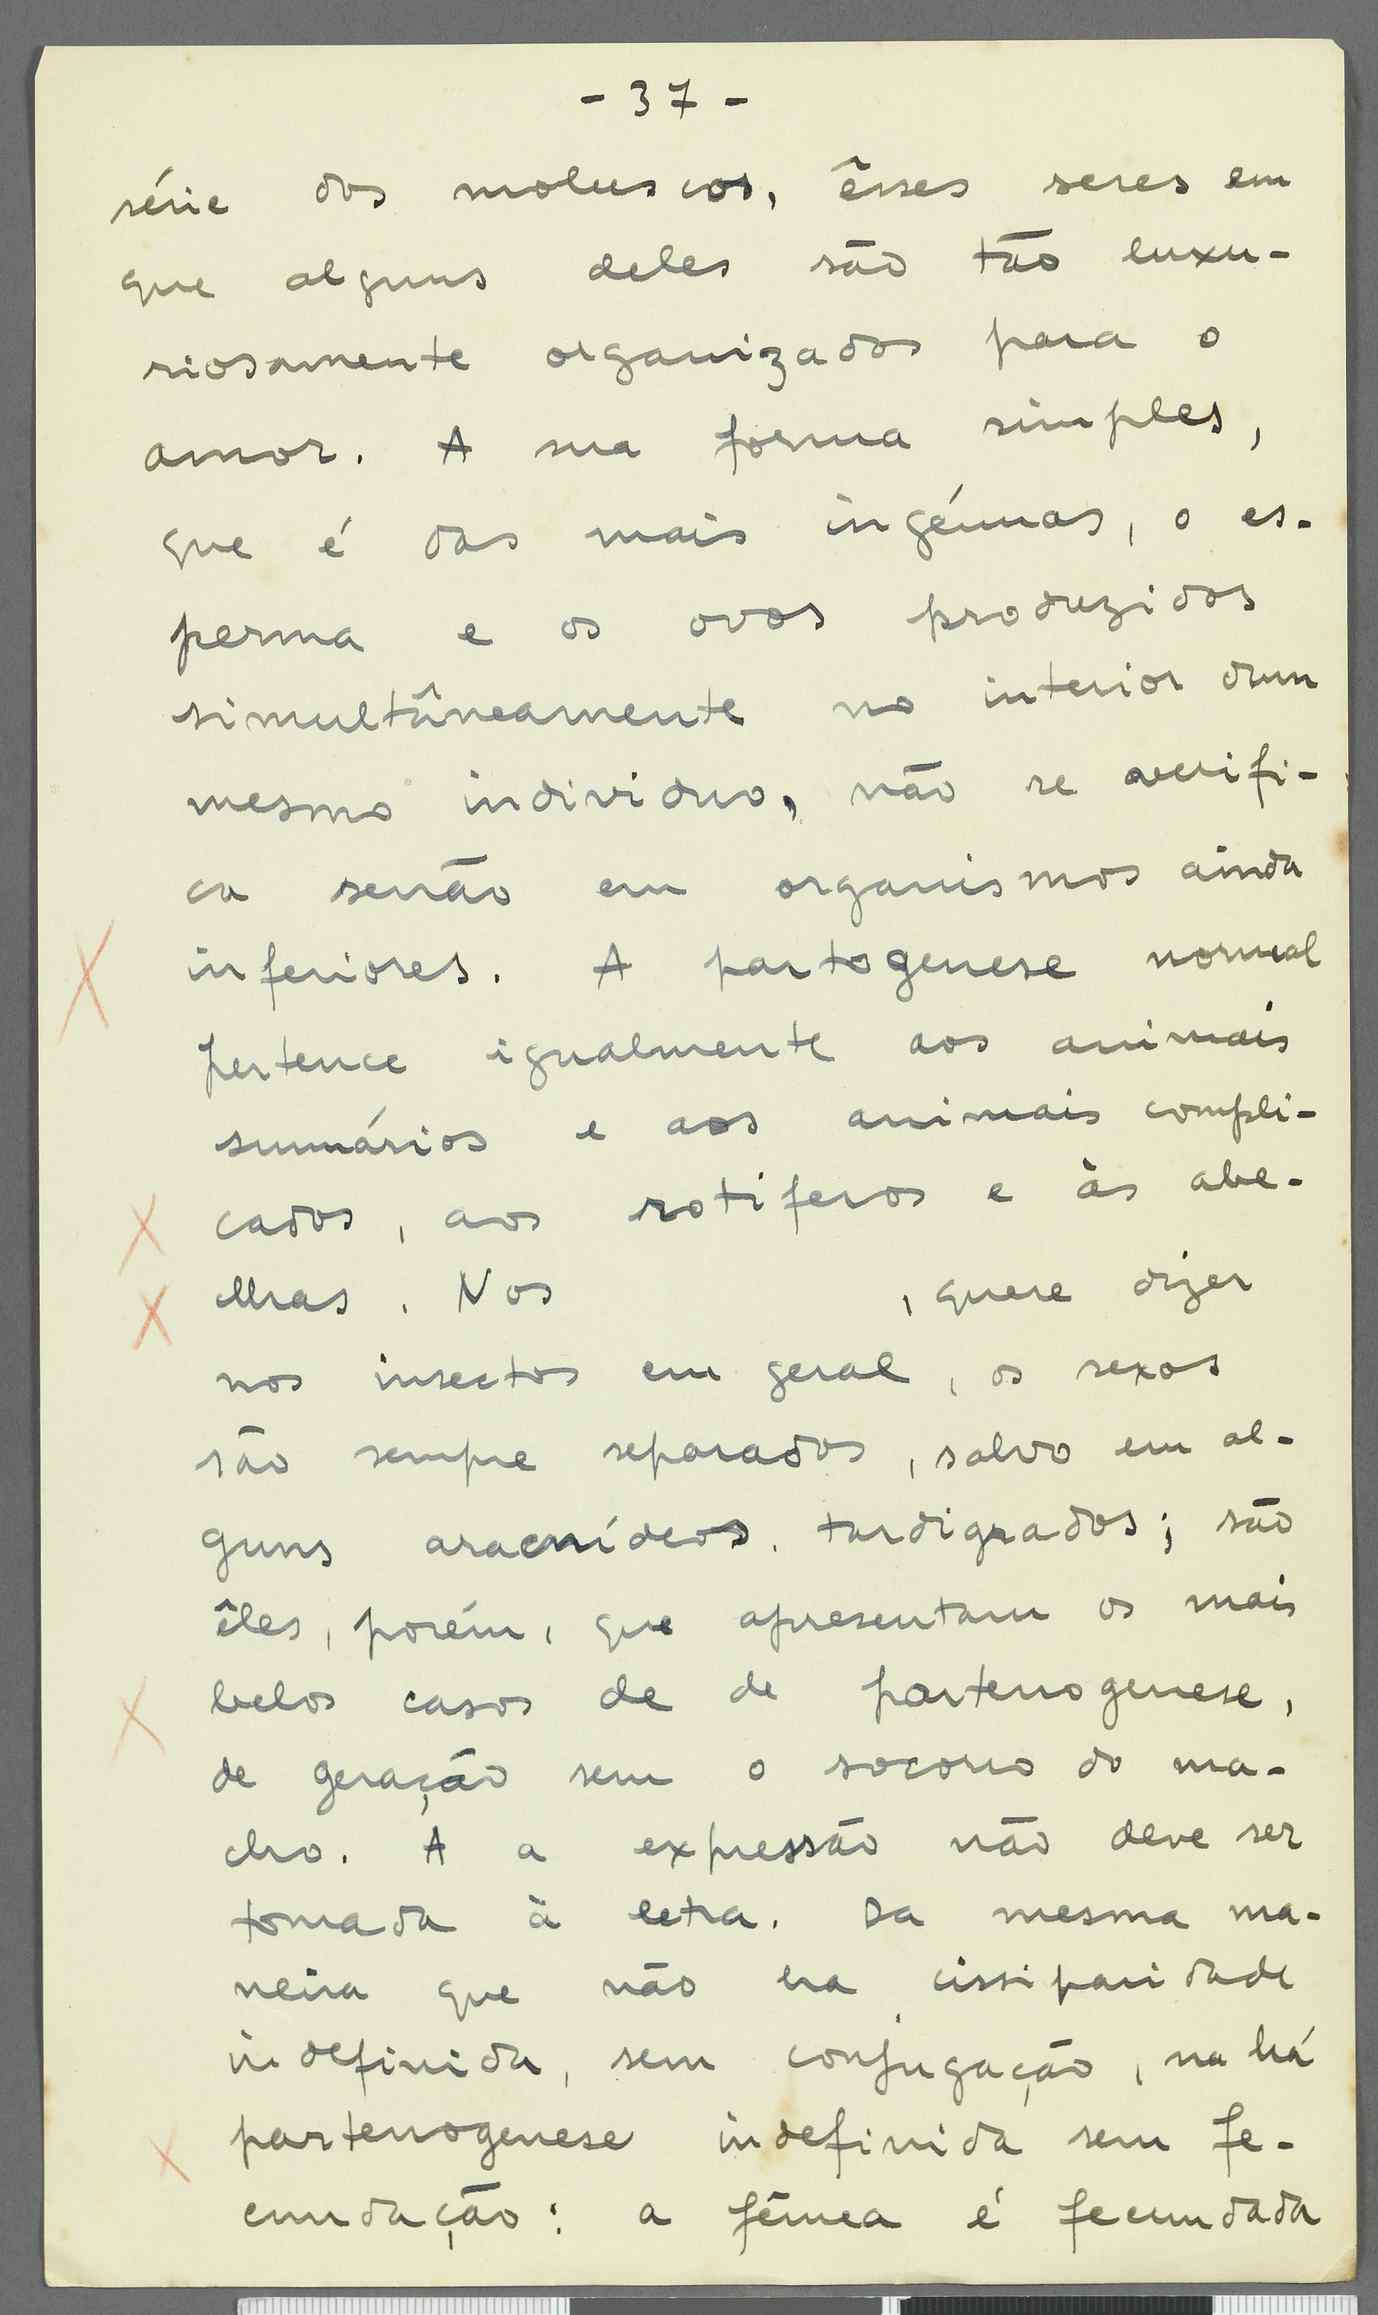 - 37 -
série dos moluscos, êsses seres em
que alguns deles são tão luxu-
riosamente organizados para o
amor. A sua forma simples,
que é das mais ingénuas, o es-
perma e os ovos produzidos
simultâneamente no interior dum
mesmo individuo, não se averifi-
ca senão em organismos ainda
inferiores. A partogenese normal
pertence igualmente aos animais
sumários e aos animais compli-
cados, aos rotiferos e às abe-
lhas. Nos , quere dizer
nos insectos em geral, os sexos
são sempre separados, salvo em al-
guns aracnídeos, tardigrados; são
êles, porém, que apresentam os mais
belos casos de de partenogenese,
de geração sem o socorro do ma-
cho. A a expressão não deve ser
tomada à letra. Da mesma ma-
neira que não ha cissiparidade
indefinida, sem conjugação, na há
partenogenese indefinida sem fe-
cundação: a fêmea é fecundada